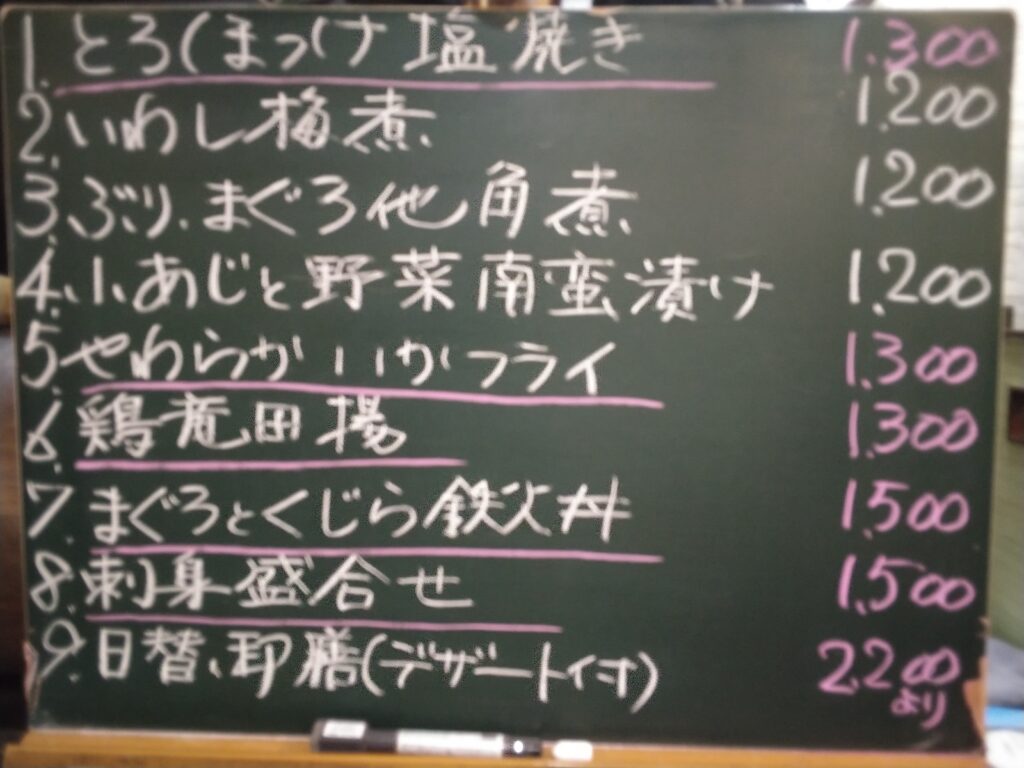 1. とろほっけ 塩焼き 1.300
2. いわし梅煮 1.200
3. ぶり.まぐろ他角煮 1.200
4. 小あじと野菜南蛮漬け 1.200
5. やわらかいかフライ 1.300
6. 鶏竜田揚 1.300
7. まぐろとくじら鉄火丼 1.500
8. 刺身盛合せ 1.500
9. 日替、御膳(デザート付) 2.200
より